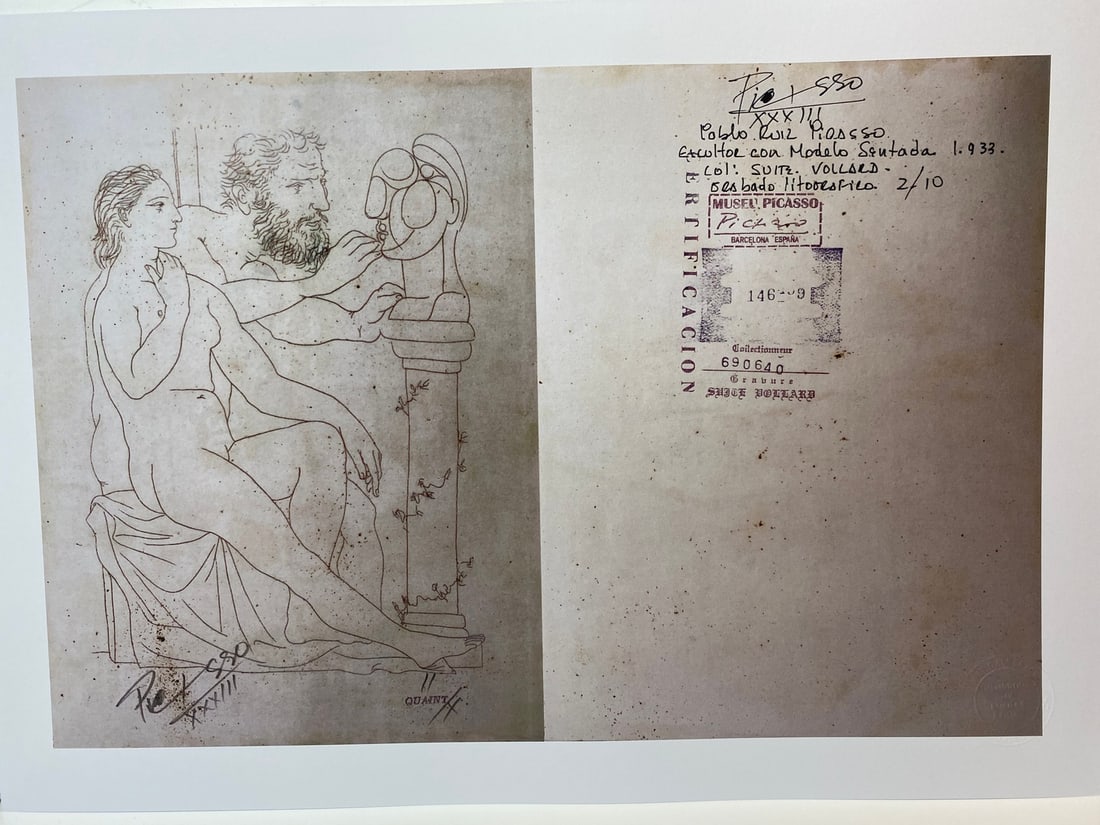 Picasso
XXXIII
QUAINT
Picasso
XXXIII
Pablo Ruiz Picasso
Escultor con Modelo Sentada 1.933.
Col: SUITE. VOLLARD.
Grabado litografico 2/10
CERTIFICACION
MUSEU PICASSO
Picasso
BARCELONA ESPAÑA
Collectionneur
690640
Gravure
SUITE VOLLARD